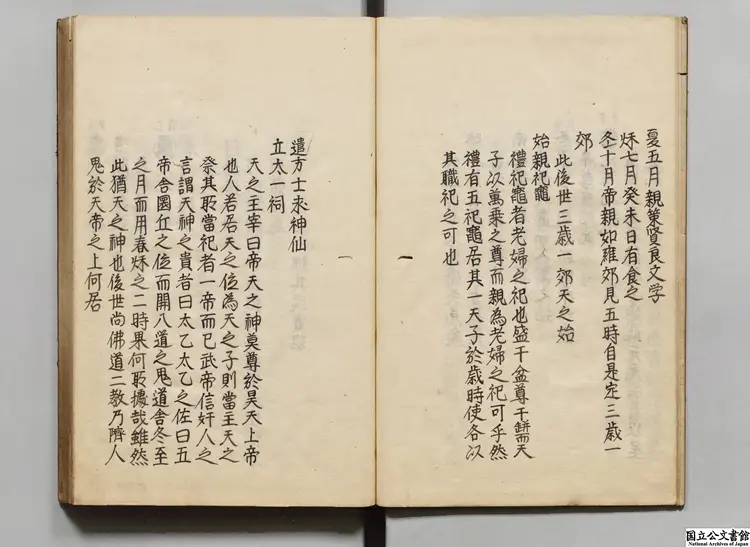 夏五月親策賢良文学
秌七月癸未日有食之
冬十月帝親如雍郊見五畤自是定三歳一
郊
此後世三歳一郊天之始
始親祀竈
禮祀竈者老婦之祀也盛于盆尊于缾需天
子以萬乗之尊而親為老婦之祀可乎然
禮有五祀竈居其一天子於歳時使各以
其職祀之可也
遣方士求神仙
立太一祠
天之主宰曰帝天之神莫尊於昊天上帝
也人君居天之位為天之子則當主天之
祭其所當祀者一帝而已武帝信奸人之
言謂天神之貴者曰太乙太乙之佐曰五
帝舎圜丘之位而開八道之鬼道舎冬至
之月而用春秌之二時果何所攄哉雖然
此猶天之神也後世尚佛道二教乃躋人
鬼於天帝之上何居
国立公文書館
National Archives of Japan